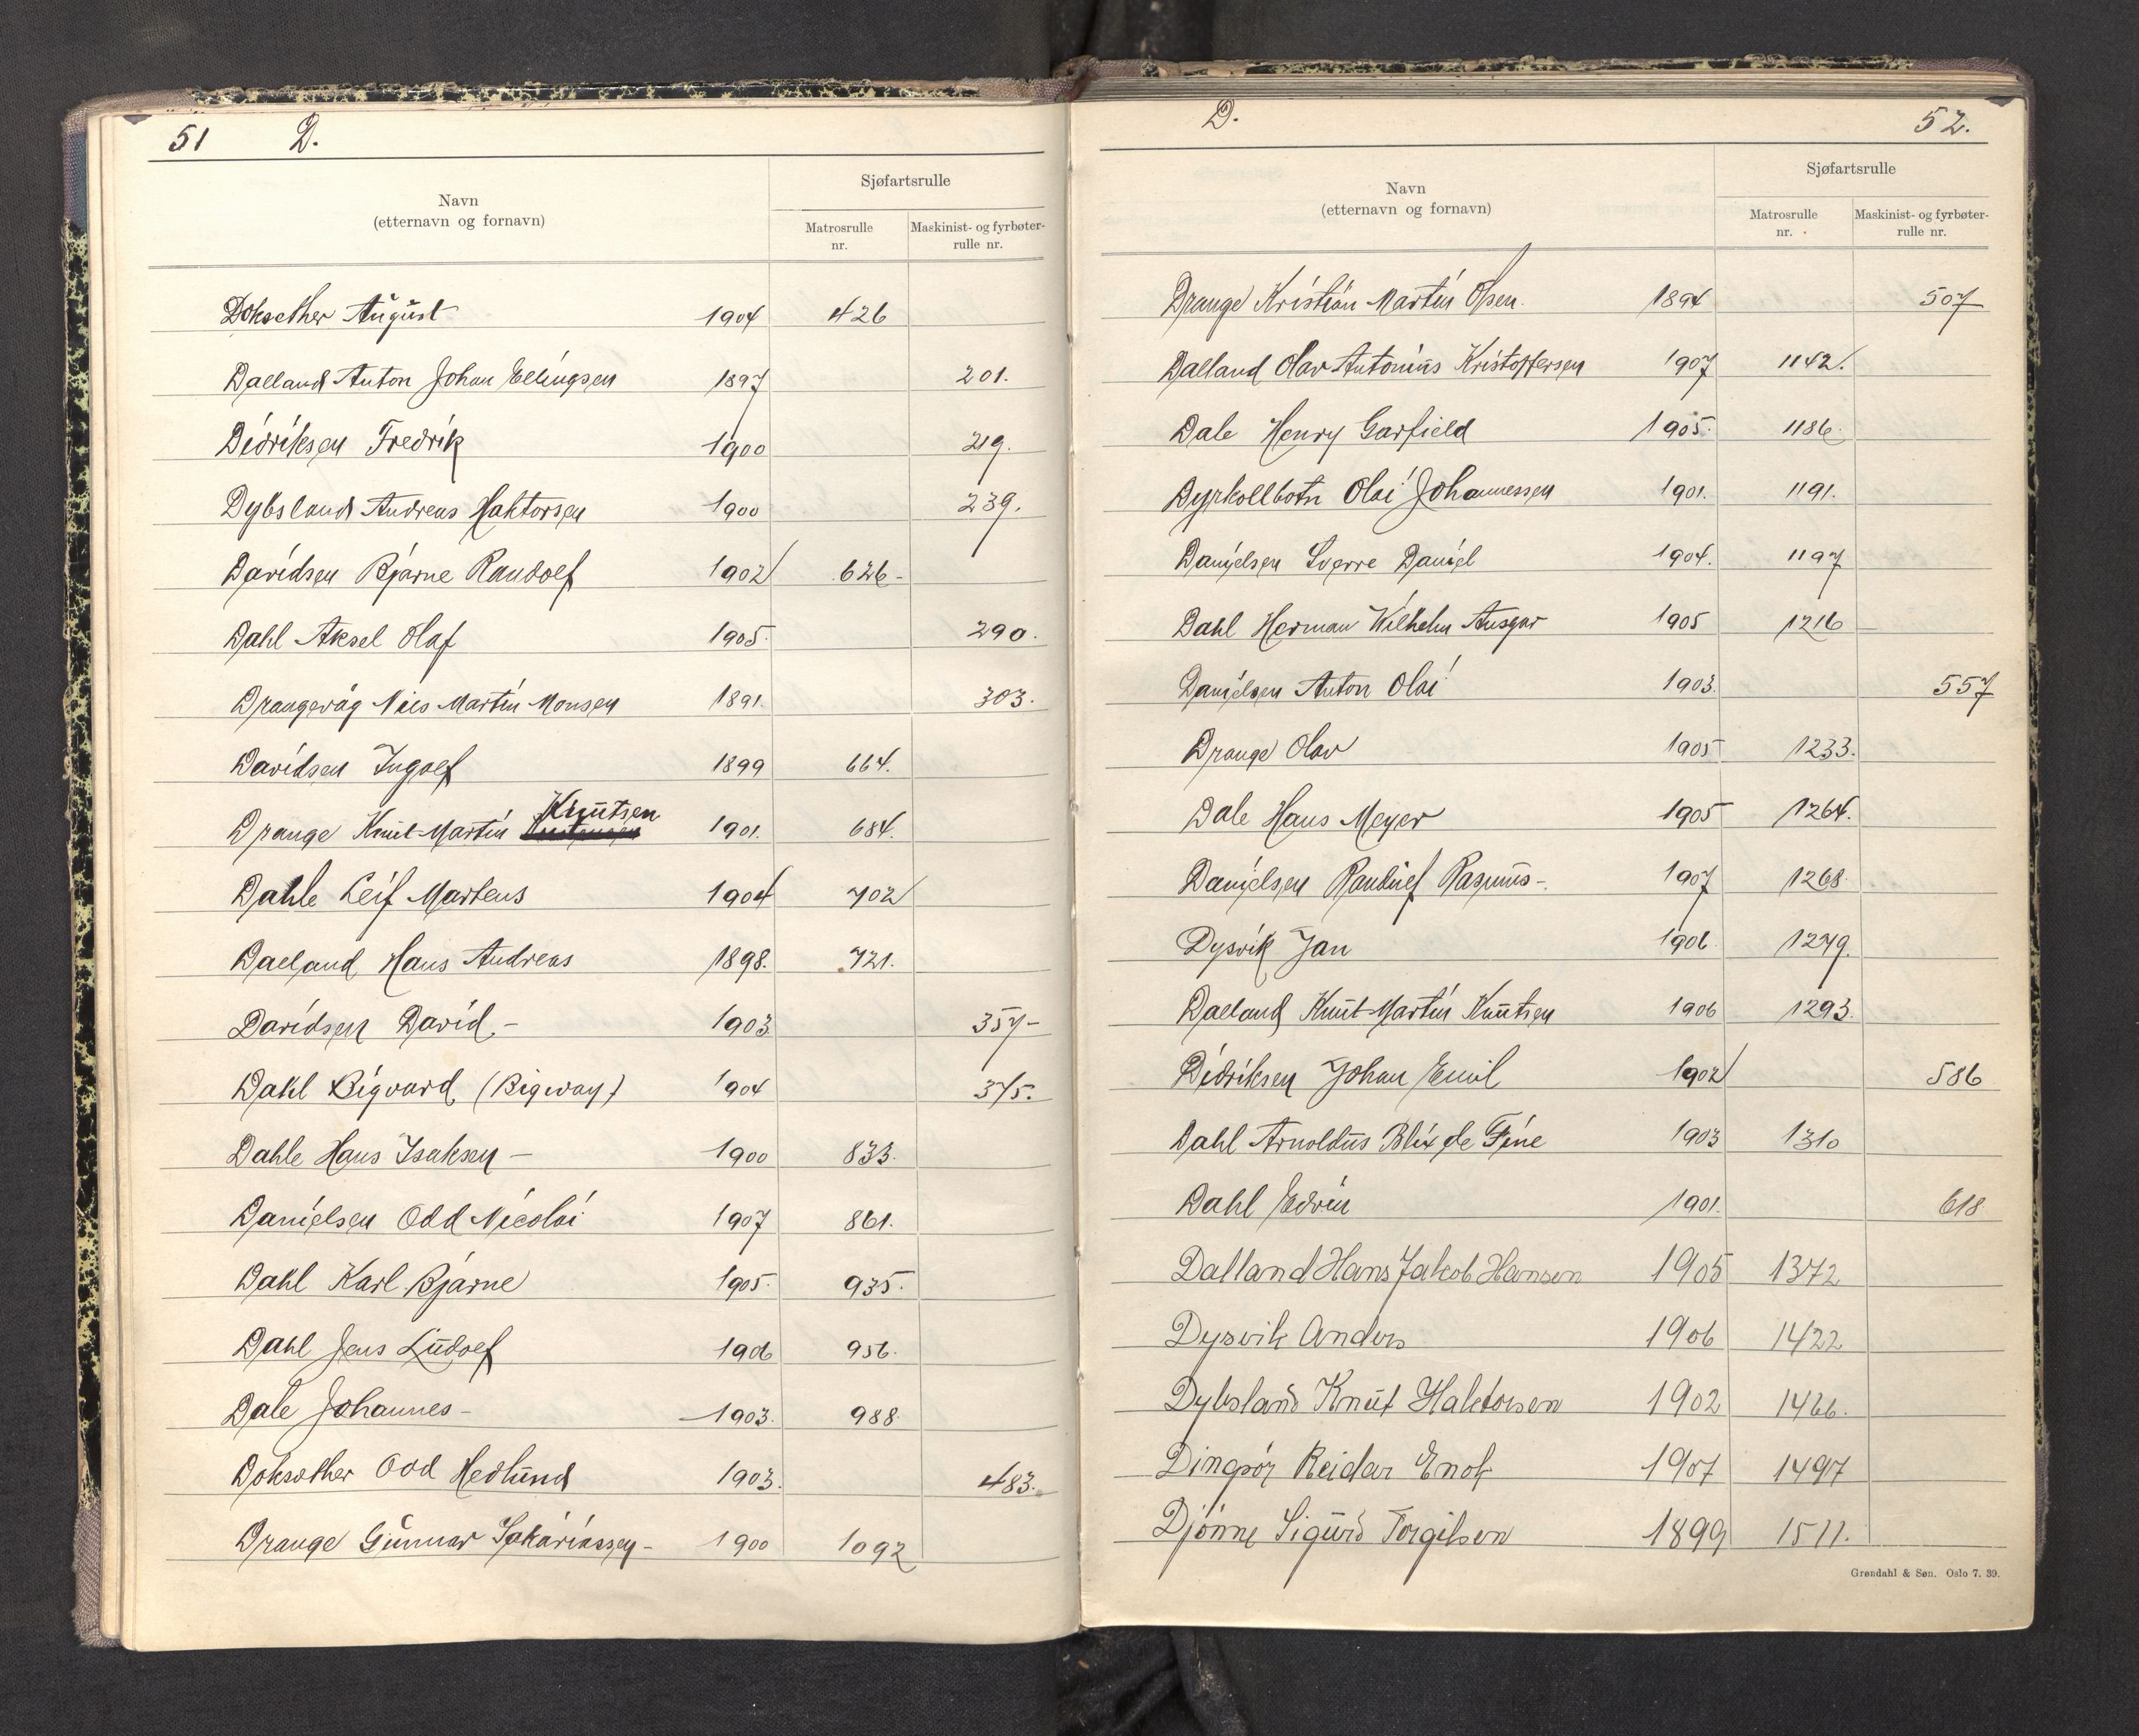 51 D.
Navn
(etternavn og fornavn)
Sjøfartsrulle
Matrosrulle
nr.
Maskinist- og fyrbøter-
rulle nr.
Doksether August 1904 426
Dalland Anton Johan Ellingsen 1897 201.
Didriksen Fredrik 1900 219.
Dybsland Andreas Haktorsen 1900 239.
Davidsen Bjarne Randolf 1902 626-
Dahl Aksel Olaf 1905. 290.
Drangevåg Nils Martin Monsen 1891. 303.
Davidsen Ingolf 1899 664.
Knutsen
Drange Knut Martin 1901. 684.
Dahle Leif Martens 1904 702
Dalland Hans Andreas 1898. 721.
Davidsen David,- 1903. 357-
Dahl Sigvard, (Bigway) 1904 375.
Dahle Hans Isaksen - 1900 833.
Danielsen Odd Nicolai 1907 861.
Dahl Karl Bjarne 1905. 935.
Dahl Jens Ludolf 1906 956.
Dale Johannes- 1903. 988.
Doksether Odd Hedlund 1903. 483.
Drange Gunnar Sakariassen- 1900 1092
D. 52.
Navn
(etternavn og fornavn)
Sjøfartsrulle
Matrosrulle
nr.
Maskinist- og fyrbøter-
rulle nr.
Drange Kristian Martin Olsen. 1894 507
Dalland Olav Antonius Kristoffersen 1907 1142.
Dale Henry Garfield 1905. 1186.
Dyrkollbotn Olai Johannessen 1901. 1191.
Danielsen Sverre Daniel 1904. 1197
Dahl Herman Wilhelm Ansgar 1905 1216
Danielsen Anton Olai 1903. 557
Drange Olav 1905 1233.
Dale Hans Meyer 1905 1264.
Danielsen Randulf Rasmus-. 1907 1268.
Dysvik Jan 1906. 1279.
Dalland Knut Martin Knutsen 1906 1293.
Didriksen Johan Emil 1902 586
Dahl Arnoldus Blix de Fine 1903 1310
Dahl Edvin 1901. 618
Dalland Hans Jakob Hansen 1905 1372
Dysvik Anders 1906 1422
Dybsland Knut Haktorsen 1902 1466.
Dingsør Reidar Enok 1907 1497
Djönne Sigurd Torgilsen 1899 1511.
Grøndahl & Søn. Oslo 7. 39.